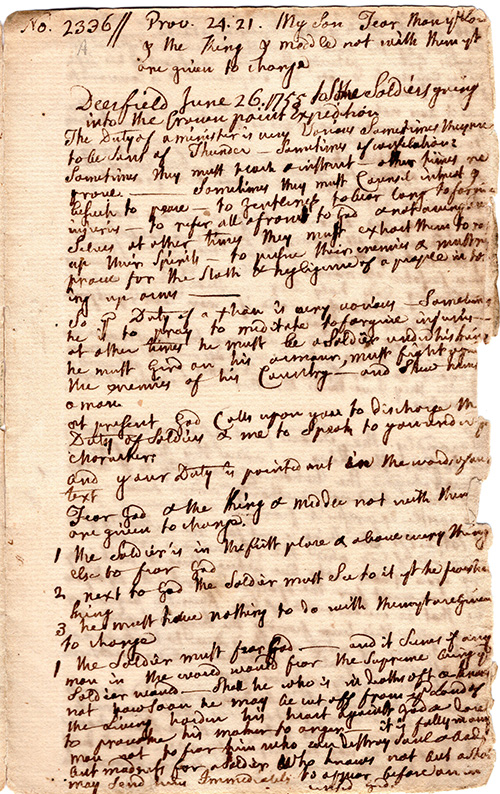 No. 2336 // Prov. 24. 21. My Son Fear thou ye Lord
A
& the King & medle not with them yt
are given to change
Deerfield June 26. 1755 to the Soldiers going
into the Crown point Expedition
The Duty of a minister is very various Sometimes they are
to be Sons of Thunder — Sometimes of consolation:
Sometimes they must teach & instruct — other times re
prove. — Sometimes they must Counsel intreat &
beseech to peace — to gentleness to bear long to forgive
injuries — to refer all affronts to God & not avenge
Selves at other times they must exhort them to ro
up their Spirits — to pursue their enemies & must re
prove for the Sloth & negligence of a people in to
ing up arms —
So ye Duty of a Xtian is very various — Sometimes
he is to pray to meditate to forgive injuries —
at other times he must be a Soldier under his king
he must Gird on his armour, must fight
the enemies of his Country — and Shew himself
a man
at present God Calls upon you to discharge the
Duty of Soldiers & me to Speak to you under
character:
and your Duty is pointed out in the words of our
text
Fear God & the King & middle not with them
are given to change.
1 the Soldier is in the first place & above every thing
else to fear God
2 next to God the Soldier must See to it yt he fear his
king
3 he must have nothing to do with them yt are given
to change
1 the Soldier must fear God — and it Seems if any
man in the world would fear the Supreme being ye
Soldier would — Shall he who is in deaths oft & knows
not how soon he may be cut off from ye Land of
the Living harden his heart against God & dare
to provoke his maker to anger — it is folly in any
man not to fear him who can destroy Soul & body
but madness for a Soldier who knows not but a shot
may Send him Immediately to appear before an